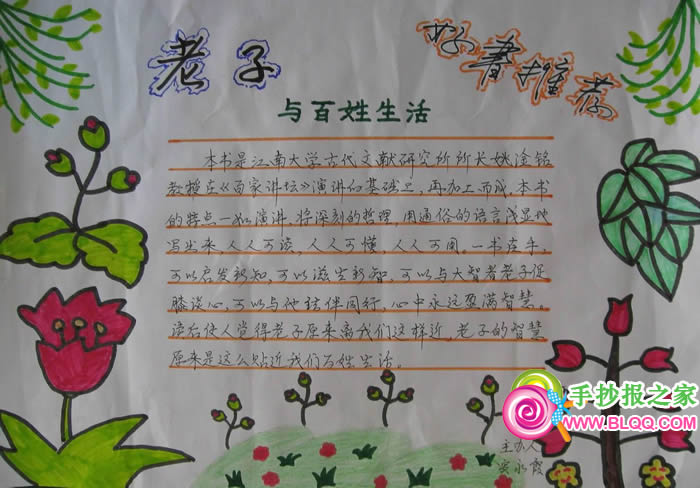 老子
好书推荐
与百姓生活
本书是江南大学古代文献研究所所长姚淦铭
教授在《百家讲坛》演讲的基础上,再加工而成,本书
的特点一如演讲,将深刻的哲理,用通俗的语言浅显地
写出来,人人可读,人人可懂,人人可用。一书在手,
可以启发新知,可以滋生新智,可以与大智者老子促
膝谈心,可以与他结伴同行,心中永远盈满智慧。
读后使人觉得老子原来离我们这样近,老子的智慧
原来是这么贴近我们百姓生活。
手抄报之家
WWW.BLQQ.COM
主办人
永霞